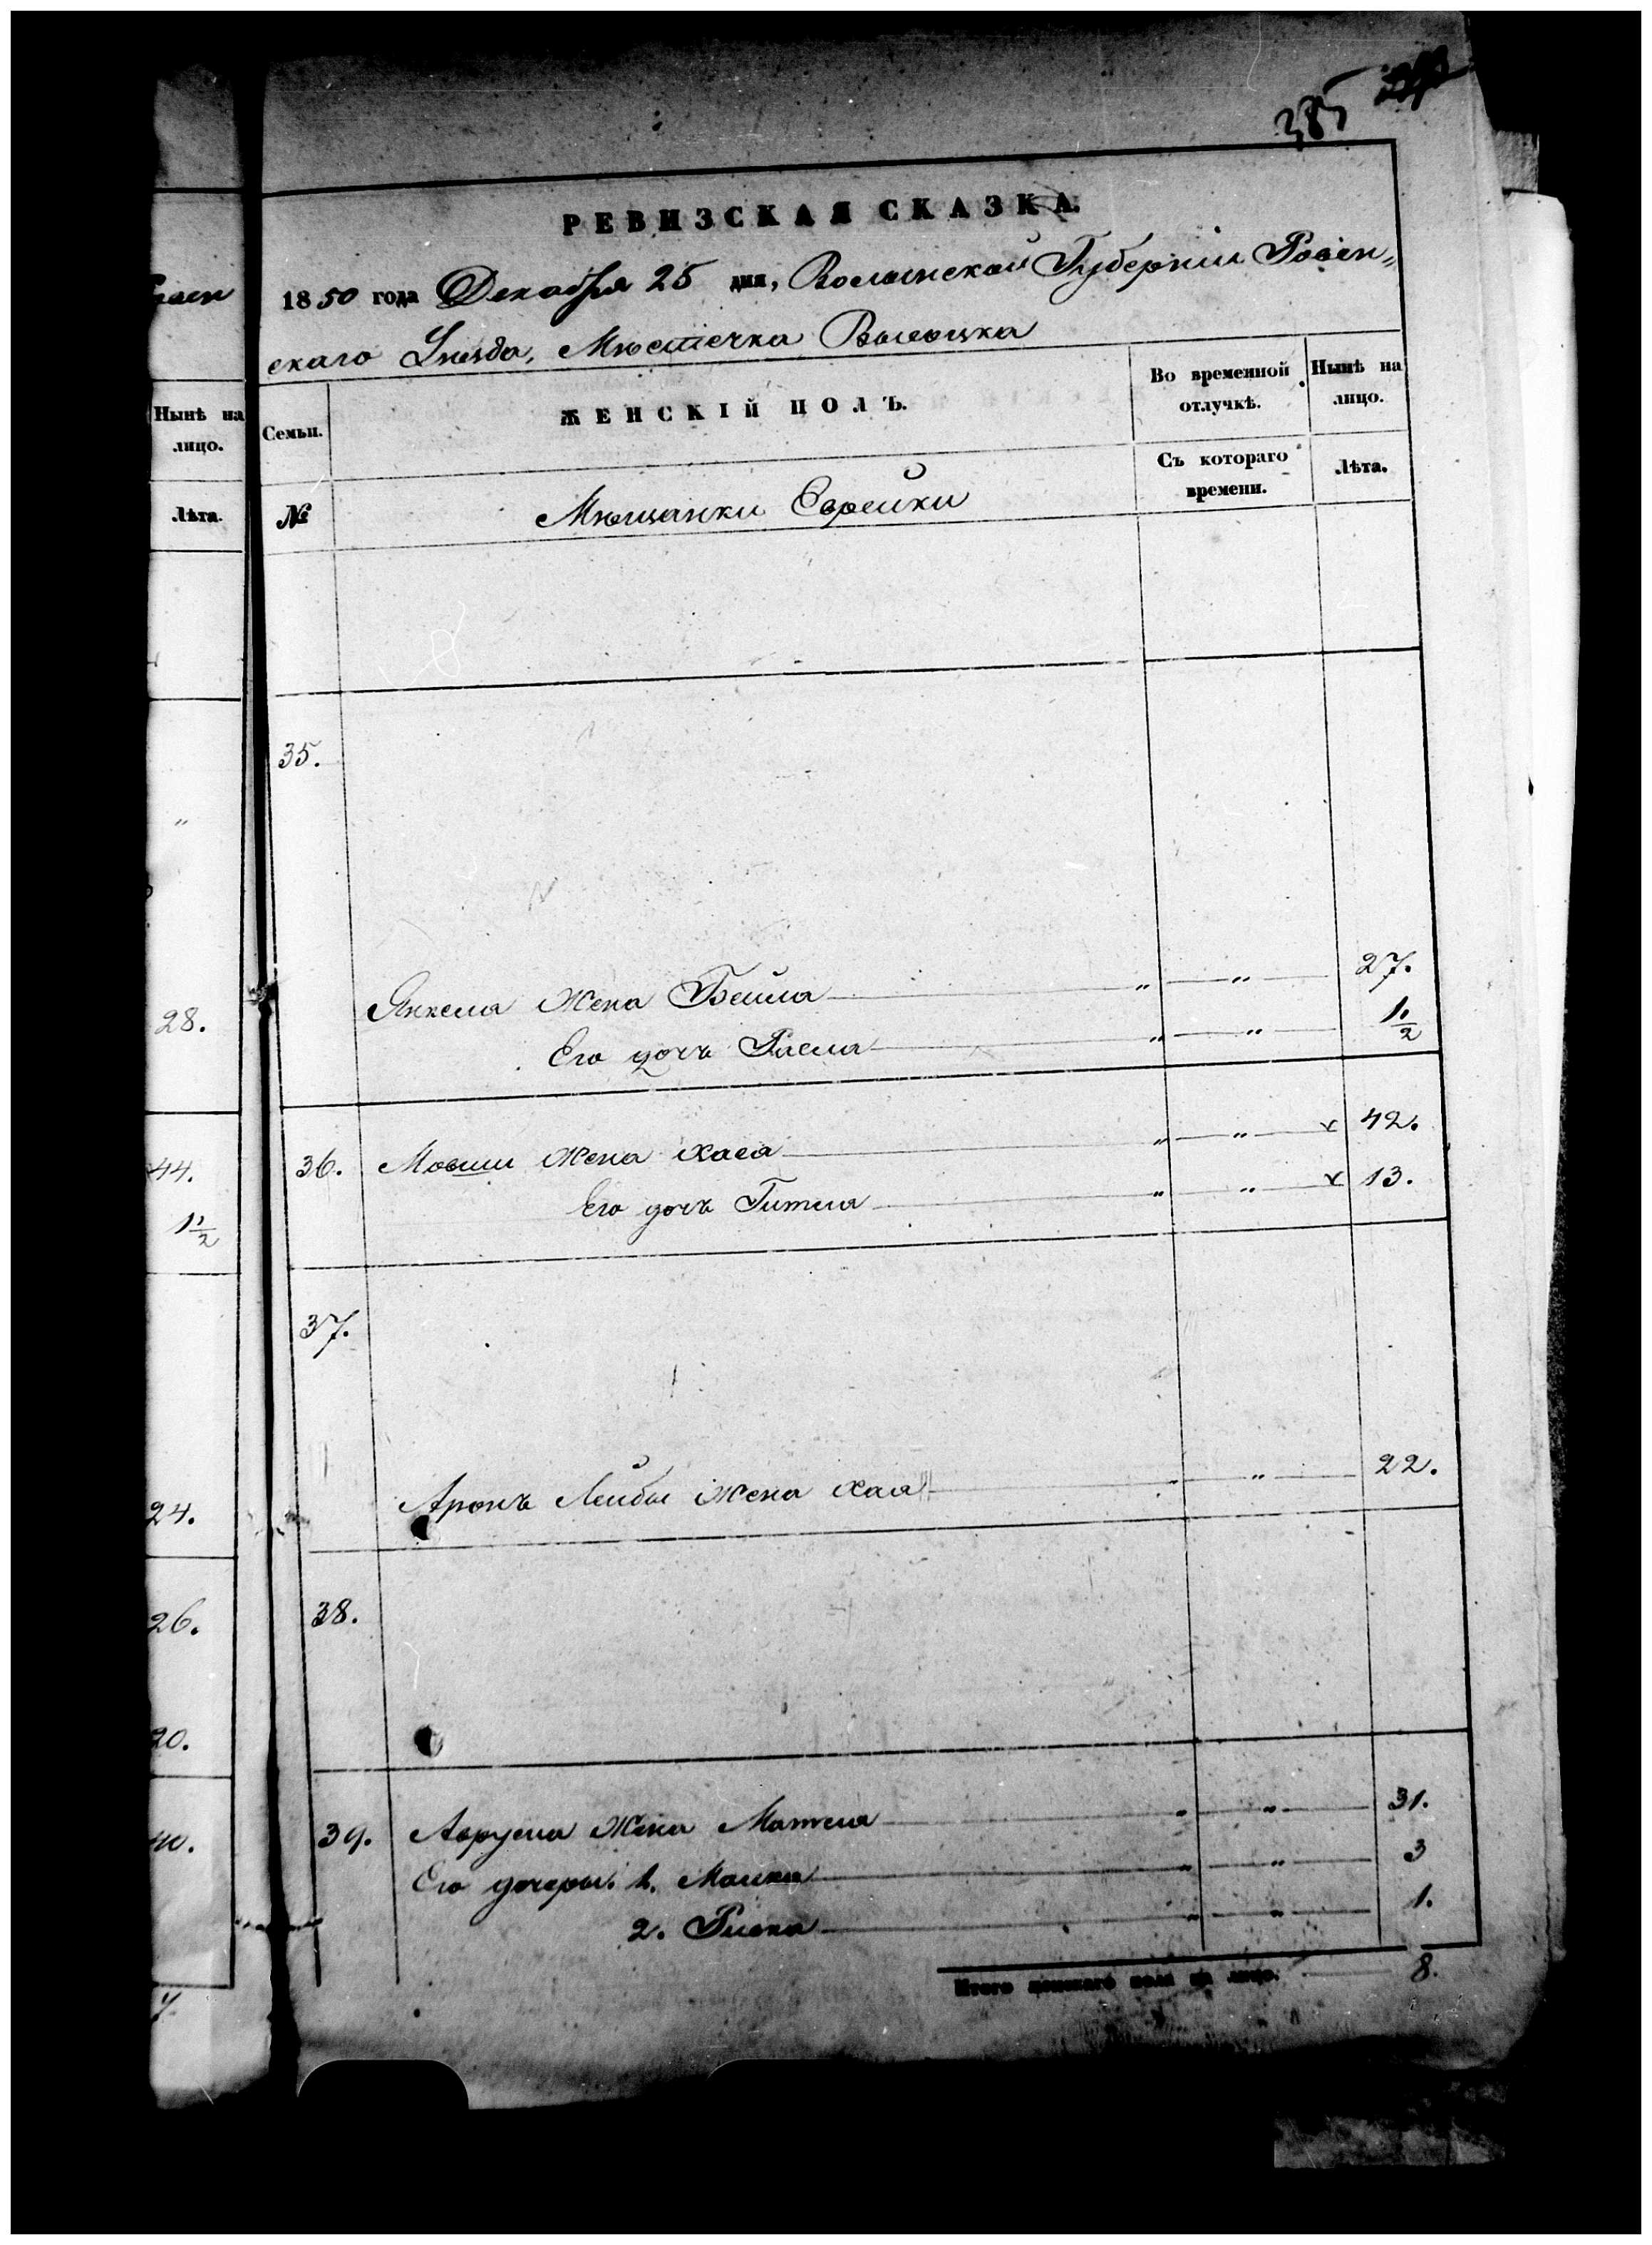 385
РЕВИЗСКАЯ СКАЗКА.
1850 года Декабря 25 дня, Волынской Губернiи Ровен„
скаго Уѣзда, Мѣстечка Высоцка
Нынѣ на лицо.
Лѣта.
28.
44.
1 1/2
24.
26.
20.
40.
Семьи. ЖЕНСКІЙ ПОЛЪ. Во временной отлучкѣ. Нынѣ на лицо.
№ Мѣщанки Еврейки Съ котораго времени. Лѣта.
35.
Янкеля Жена Бейла „ „ 27.
Его дочь Раеля „ „ 1 1/2
36. Мовши Жена Хася „ „ 42.
Его дочь Гителя „ „ 13.
37.
Аронъ Лейбы Жена Хая „ „ 22.
38.
39. Аврума Жена Мателя „ „ 31.
Его дочери: 1. Малка „ „ 3
2. Ривка „ „ 1.
Итого женскаго пола на лицо. 8.